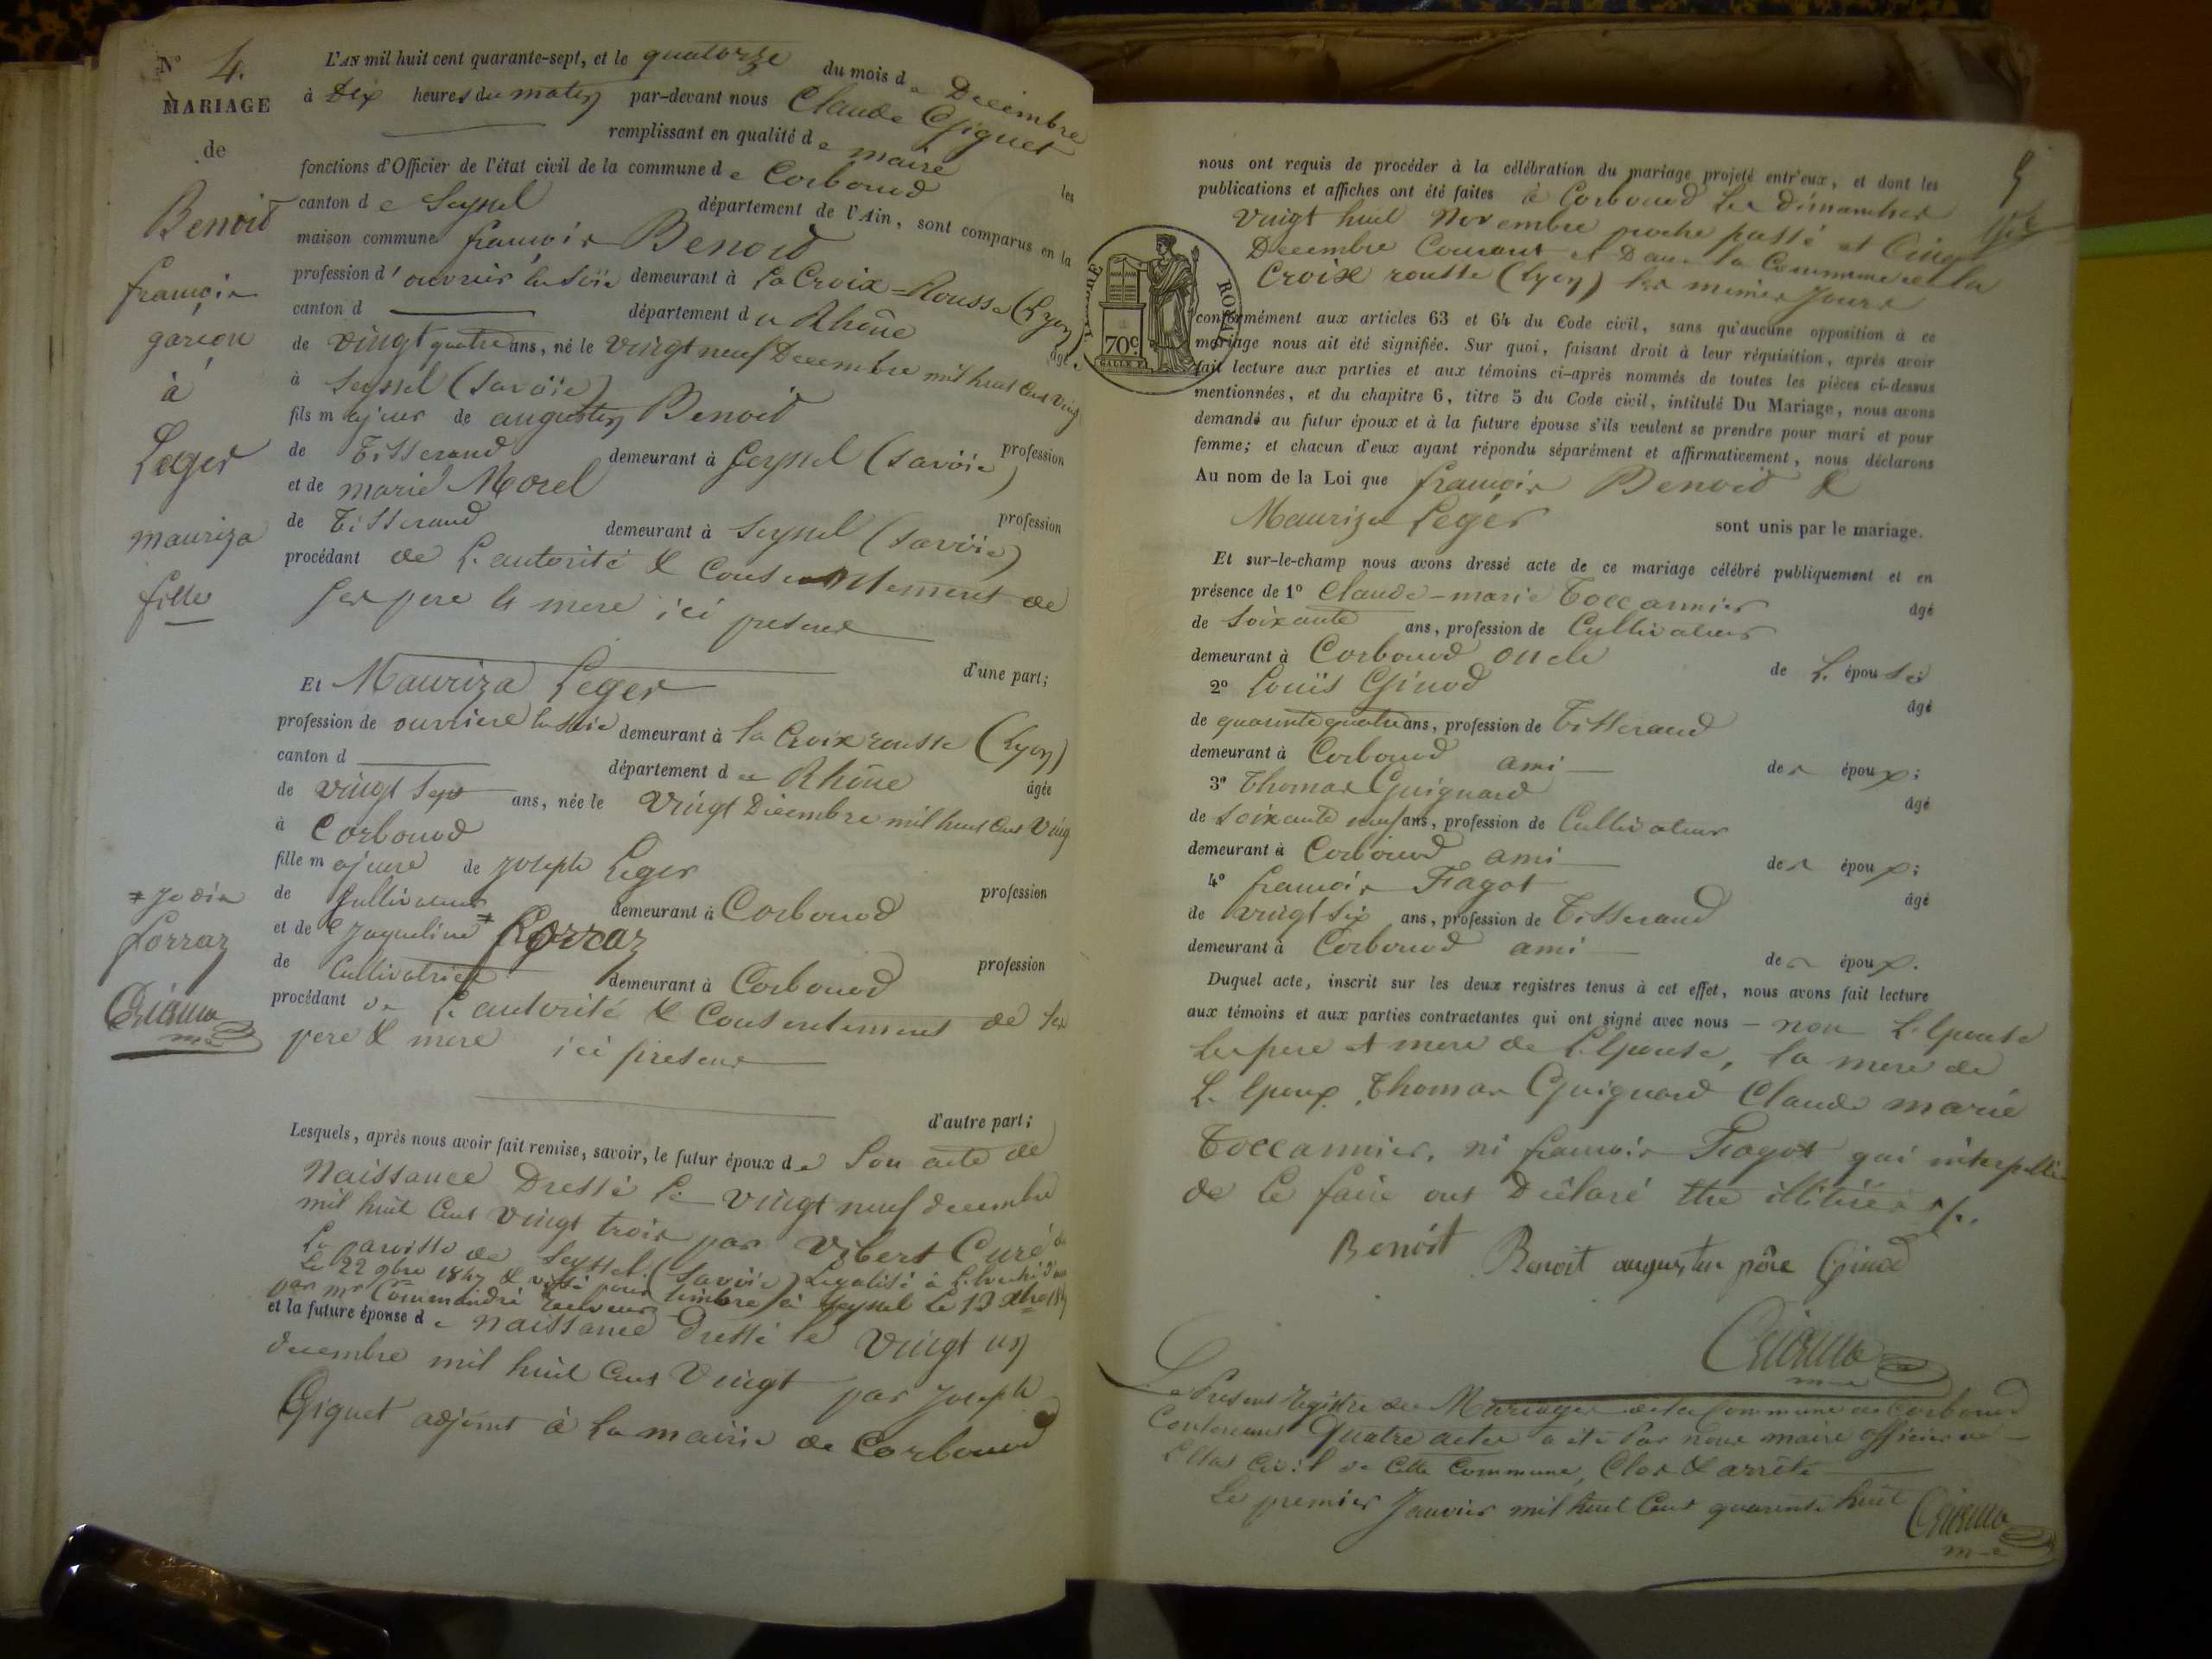 N° 4.
MARIAGE
de
Benoit
françois
garçon
à
Leger
mauriza
fille
L'AN mil huit cent quarante-sept, et le quatorze du mois de Décembre
à dix heures du matin par-devant nous Claude Giguet
remplissant en qualité de maire les
fonctions d'Officier de l'état civil de la commune de Corbonod
canton de Seyssel département de l'Ain, sont comparus en la
maison commune françois Benoid
profession d'ouvrier en soie demeurant à la Croix-Rousse (Lyon)
canton d département du Rhône âgé
de vingt quatre ans, né le vingt neuf Decembre mil huit cent vingt
à Seyssel (Savoie)
fils majeur de augustin Benoid profession
de Tisserand demeurant à Seyssel (Savoie)
et de marie Morel profession
de Tisserand demeurant à Seyssel (Savoie)
procédant de l'autorité & consentement de
ses pere & mere ici present
d'une part;
Et Mauriza Leger
profession de ouvriere en soie demeurant à la Croix rousse (Lyon)
canton d département du Rhône âgée
de vingt sept ans, née le vingt Décembre mil huit cent ving
à Corbonod
fille majeure de Joseph Leger profession
de Cultivateur demeurant à Corbonod
et de Jaqueline * Lorraz profession
de Cultivatrice demeurant à Corbonod
procédant de l'autorité & consentement de ses
pere & mere ici present
* Je dis
Lorraz
d'autre part;
Lesquels, après nous avoir fait remise, savoir, le futur époux de son acte de
Naissance Dressé le vingt neuf decembre
mil huit cent vingt trois par Vibert Curé de
la paroisse de Seyssel (Savoie) Legalisé à
le 22 9bre 1847 & visé pour timbre à Seyssel le 13 Xbre
par mr Commandré
et la future épouse de naissance Dressé le vingt un
decembre mil huit cent vingt par Joseph
Giguet adjoint à la mairie de Corbonod
ROYAL
70c
nous ont requis de procéder à la célébration du mariage projeté entr'eux, et dont les
publications et affiches ont été faites à Corbonod les dimanches
vingt huit Novembre proche passé et Cinq
Decembre Courant et Dans la Commune de la
Croix rousse (Lyon) les mêmes Jours
conformément aux articles 63 et 64 du Code civil, sans qu'aucune opposition à ce
mariage nous ait été signifiée. Sur quoi, faisant droit à leur réquisition, après avoir
fait lecture aux parties et aux témoins ci-après nommés de toutes les pièces ci-dessus
mentionnées, et du chapitre 6, titre 5 du Code civil, intitulé Du Mariage, nous avons
demandé au futur époux et à la future épouse s'ils veulent se prendre pour mari et pour
femme; et chacun d'eux ayant répondu séparément et affirmativement, nous déclarons
Au nom de la Loi que françois Benoid &
Mauriza Leger sont unis par le mariage.
Et sur-le-champ nous avons dressé acte de ce mariage célébré publiquement et en
présence de 1° Claude-marie Toccannier âgé
de soixante ans, profession de Cultivateur
demeurant à Corbonod oncle de l'épouse
2° Louis Ginod âgé
de quarante quatre ans, profession de Tisserand
demeurant à Corbonod ami des époux;
3° Thomas Guignard âgé
de soixante neuf ans, profession de Cultivateur
demeurant à Corbonod ami des époux;
4° françois Fagot âgé
de vingt six ans, profession de Tisserand
demeurant à Corbonod ami des époux.
Duquel acte, inscrit sur les deux registres tenus à cet effet, nous avons fait lecture
aux témoins et aux parties contractantes qui ont signé avec nous – non l'Epouse
les pere et mere de l'Epouse, la mere de
l'Epoux, Thomas Guignard Claude marie
Toccannier, ni françois Fagot qui interpellés
de le faire ont Déclaré être illitérés
Benoit Benoit augustin père Ginod
Le Present Registre des Mariages de la Commune de Corbonod
Contenant Quatre actes a été Par nous maire officier de
L'Etat Civil de Cette Commune, Clos & arrêté
le premier Janvier mil huit Cent quarante huit